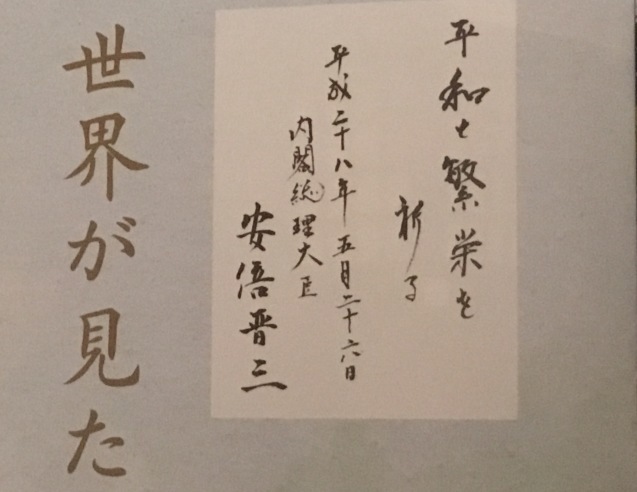 平和と繁栄を
祈る
平成二十八年五月二十六日
内閣総理大臣
安倍晋三
世界が見た